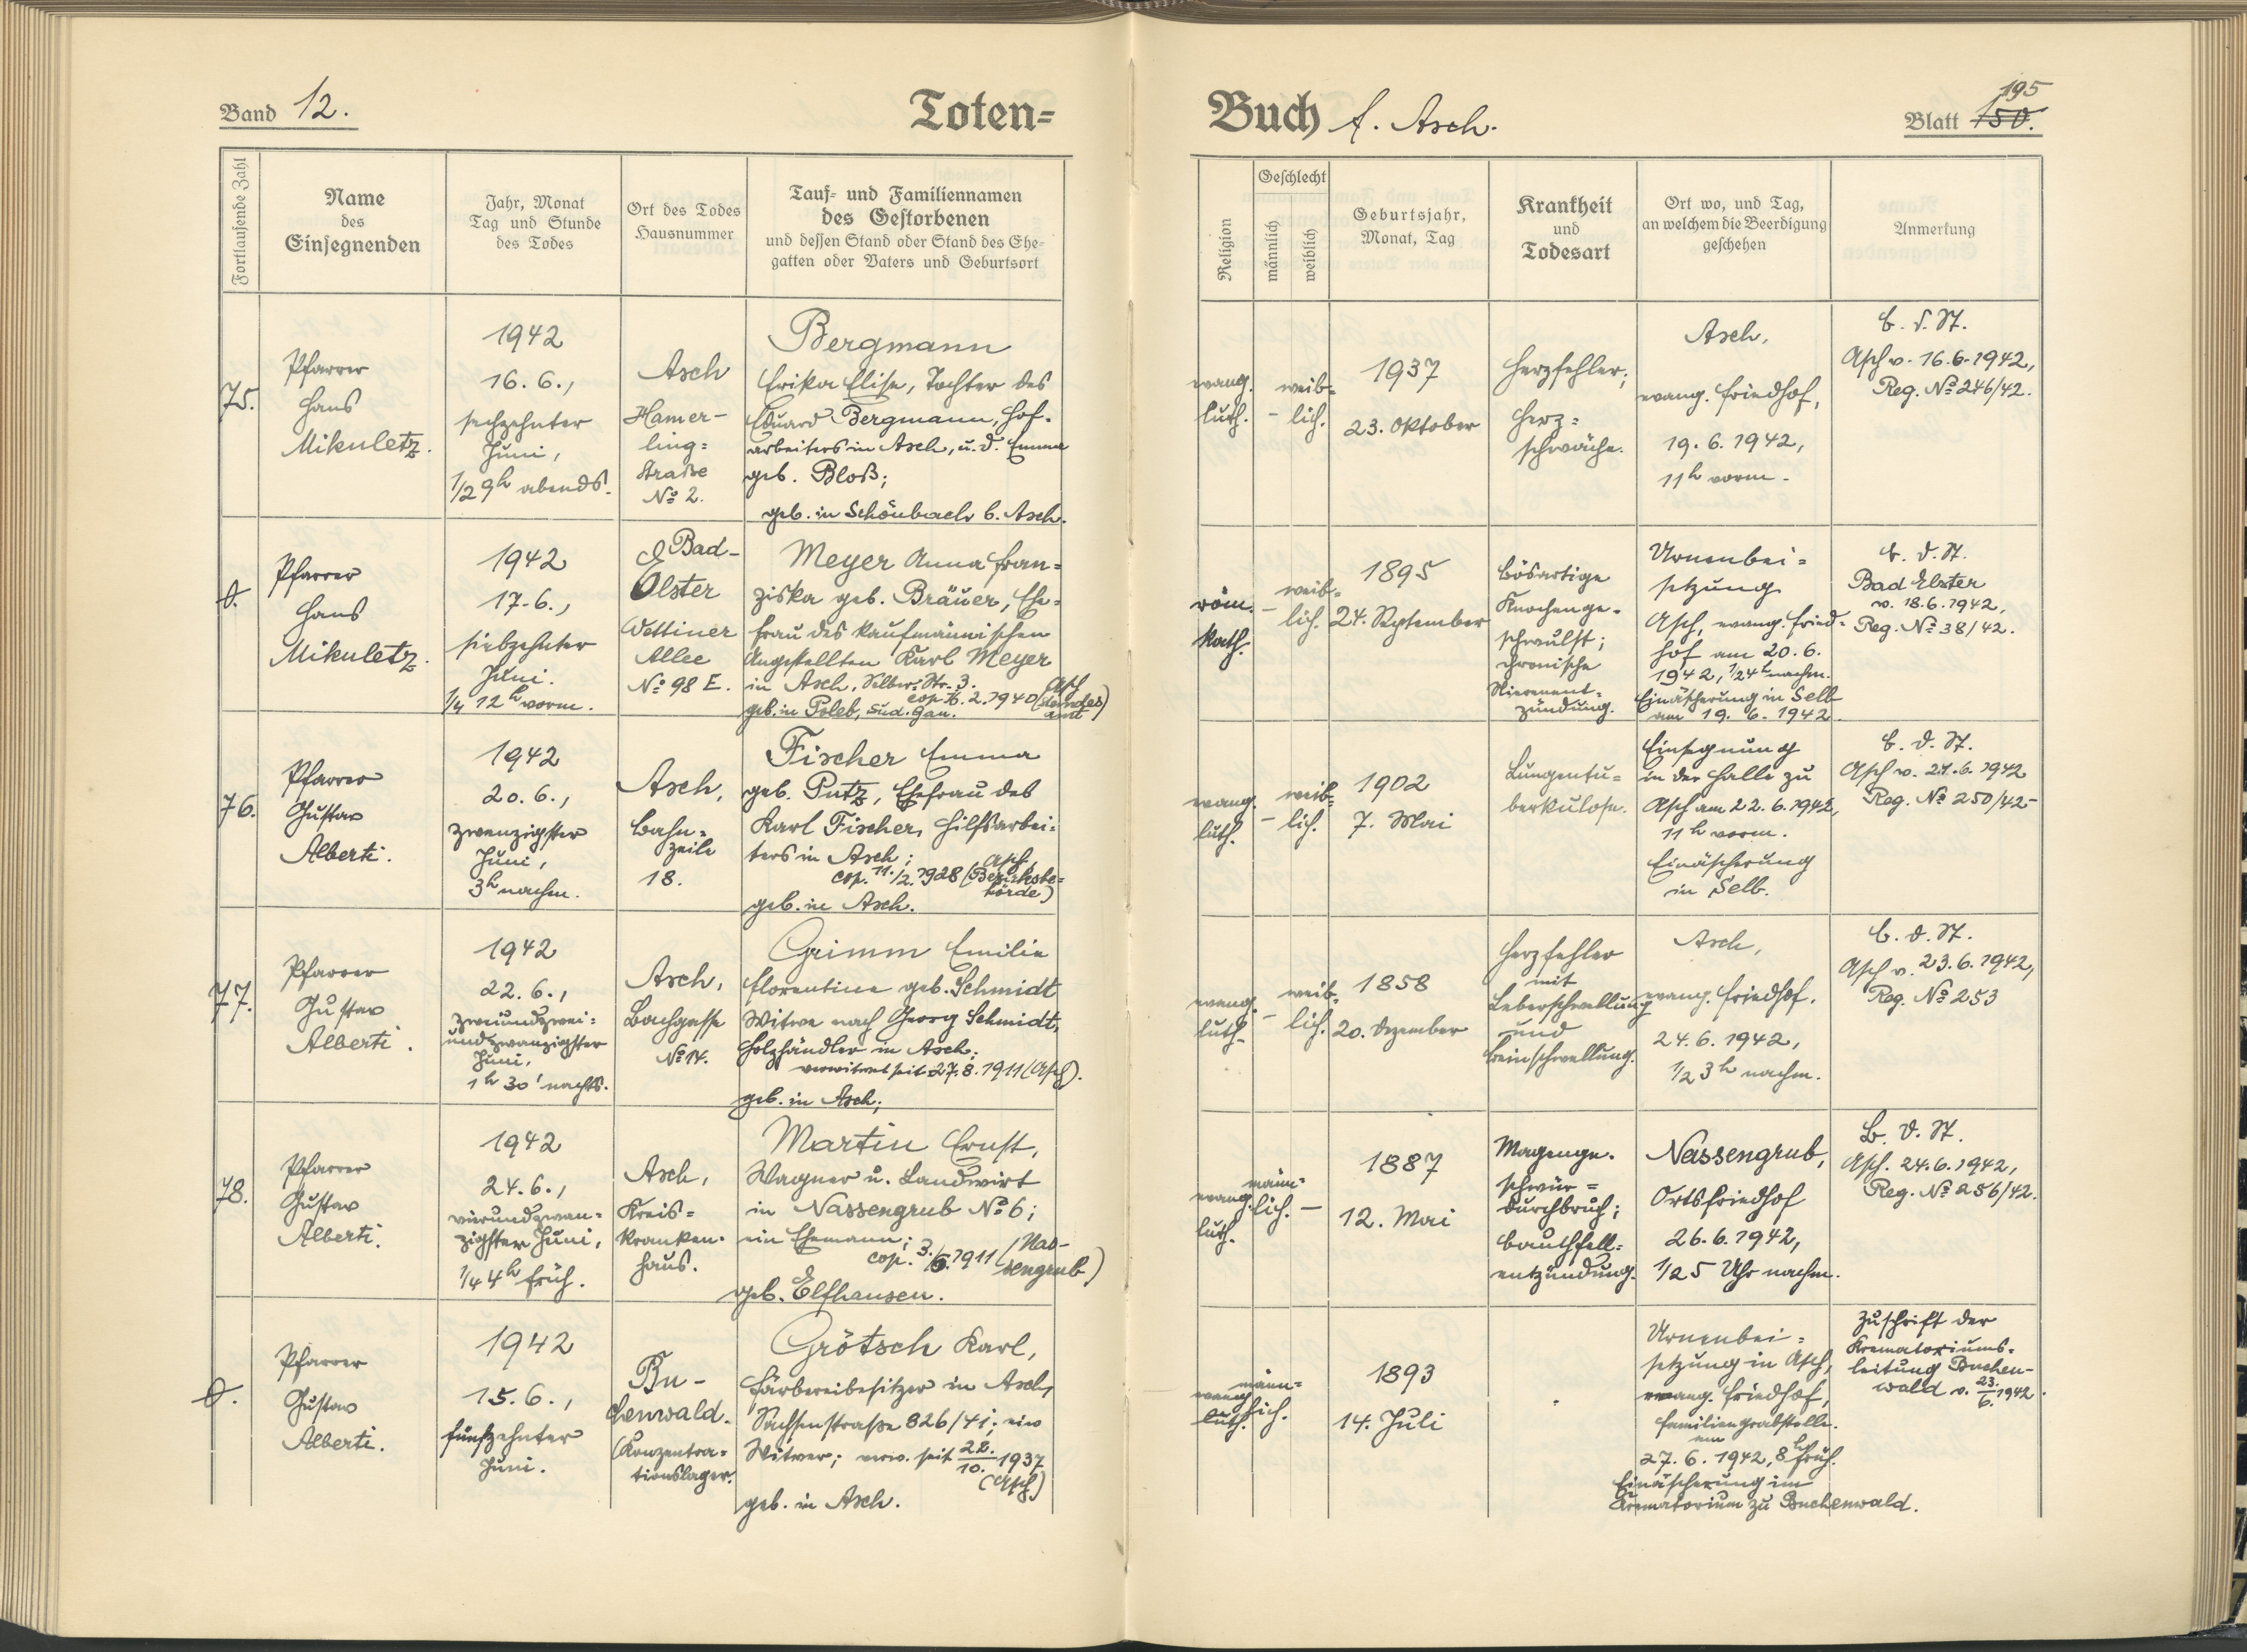 Band 12.
Toten=
Fortlaufende Zahl
Name
des
Einsegnenden
Jahr, Monat
Tag und Stunde
des Todes
Ort des Todes
Hausnummer
Tauf= und Familiennamen
des Gestorbenen
und dessen Stand oder Stand des Ehe=
gatten oder Vaters und Geburtsort
75.
Pfarrer
Hans
Mikuletz.
1942
16.6.,
sechzehnter
Juni,
1/2 9h abends.
Asch
Hamer-
ling=
Straße
No 2.
Bergmann
Erika Elise, Tochter des
Eduard Bergmann, Hof-
arbeiters in Asch, u. d. Emma
geb. Bloß;
geb. in Schönbach b. Asch.
0.
Pfarrer
Hans
Mikuletz.
1942
17.6.,
siebzehnter
Juni.
1/4 12h vorm.
Bad-
Elster
Wettiner
Allee
No 98 E.
Meyer Anna Fran=
ziska geb. Bräuer, Ehe=
frau des kaufmännischen
Angestellten Karl Meyer
in Asch, Selber-Str. 3.
geb. in Poleb, Sud. Gau.
76.
Pfarrer
Gustav
Alberti.
1942
20.6.,
zwanzigster
Juni,
3h nachm.
Asch,
Bahn=
zeile
18.
Fischer Emma
geb. Putz, Ehefrau des
Karl Fischer, Hilfsarbei=
ters in Asch;
cop. 11./2. 1928 (Asch Bezirksbe=
hörde)
geb. in Asch.
77.
Pfarrer
Gustav
Alberti.
1942
22.6.,
zweiundzwei=
undzwanzigster
Juni,
1h 30' nachts.
Asch,
Bachgasse
No 14.
Grimm Emilie
Florentine geb. Schmidt
Witwe nach Georg Schmidt,
Holzhändler in Asch;
verwitwet seit 27.8.1911 (Asch).
geb. in Asch;
78.
Pfarrer
Gustav
Alberti.
1942
24.6.,
vierundzwan=
zigster Juni,
1/4 4h früh.
Asch,
Kreis=
kranken-
haus.
Martin Ernst,
Wagner u. Landwirt
in Nassengrub No 6;
ein Ehemann;
cop. 3./6. 1911 (Nas-
sengrub)
geb. Elfhausen.
0.
Pfarrer
Gustav
Alberti.
1942
15.6.,
fünfzehnter
Juni.
Bu-
chenwald.
(Konzentra=
tionslager.
Grötsch Karl,
Färbereibesitzer in Asch,
Sachsenstraße 826/41; ein
Witwer; verw. seit 22./10. 1937
(Asch)
geb. in Asch.
Buch f. Asch.
195
Blatt 150.
Religion
Geschlecht
männlich
weiblich
Geburtsjahr,
Monat, Tag
Krankheit
und
Todesart
Ort wo, und Tag,
an welchem die Beerdigung
geschehen
Anmerkung
evang.
luth.
-
weib=
lich.
1937
23. Oktober
Herzfehler;
Herz=
schwäche.
Asch,
evang. Friedhof,
19.6.1942,
11h vorm.
B. d. St.
Asch v. 16.6.1942,
Reg. No 246/42.
röm.
kath.
-
weib=
lich.
1895
24. September
bösartige
Knochenge-
schwulst;
chronische
Nierenent=
zündung.
Urnenbei=
setzung
Asch, evang. Fried=
hof am 20.6.
1942, 1/2 4h nachm.
Einäscherung in Selb
am 19.6.1942.
B. d. St.
Bad Elster
v. 18.6.1942,
Reg. No 38/42.
evang.
luth.
-
weib=
lich.
1902
7. Mai
Lungentu=
berkulose.
Einsegnung
in der Halle zu
Asch am 22.6.1942,
11h vorm.
Einäscherung
in Selb.
B. d. St.
Asch v. 21.6.1942
Reg. No 250/42-
evang.
luth.
-
weib=
lich.
1858
20. Dezember
Herzfehler
mit
Leberschwellung
und
Beinschwellung.
Asch,
evang. Friedhof.
24.6.1942,
1/2 3h nachm.
B. d. St.
Asch v. 23.6.1942,
Reg. No 253
evang.
luth.
männ=
lich.
-
1887
12. Mai
Magenge-
schwür=
durchbruch;
Bauchfell=
entzündung.
Nassengrub,
Ortsfriedhof
26.6.1942,
1/2 5 Uhr nachm.
B. d. St.
Asch. 24.6.1942,
Reg. No 256/42.
evang.
luth.
männ=
lich.
1893
14. Juli
Urnenbei=
setzung in Asch,
evang. Friedhof,
Familiengrabstelle.
am
27.6.1942, 8h früh.
Einäscherung im
Krematorium zu Buchenwald.
Zuschrift der
Krematoriums-
leitung Buchen-
wald v. 23./6. 1942.